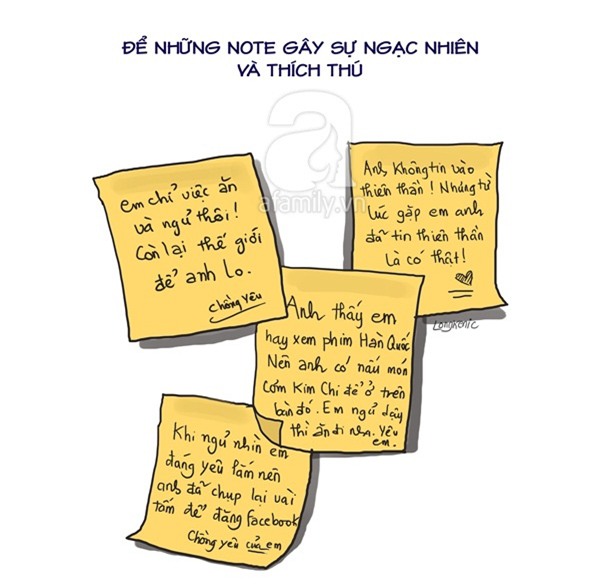 ĐỂ NHỮNG NOTE GÂY SỰ NGẠC NHIÊN
VÀ THÍCH THÚ
afamily.vn
em chỉ việc ăn
và ngủ thôi!
Còn lại thế giới
để anh lo.
Chồng yêu
Anh Không tin vào
thiên thần! Nhưng từ
lúc gặp em anh
đã tin thiên thần
là có thật!
Anh thấy em
hay xem phim Hàn Quốc
Nên anh có nấu món
Cơm Kim Chi để ở trên
bàn đó. Em ngủ dậy
thì ăn đi nha. Yêu
em.
Khi ngủ nhìn em
đáng yêu lắm nên
anh đã chụp lại vài
tấm để đăng facebook
Chồng yêu của em